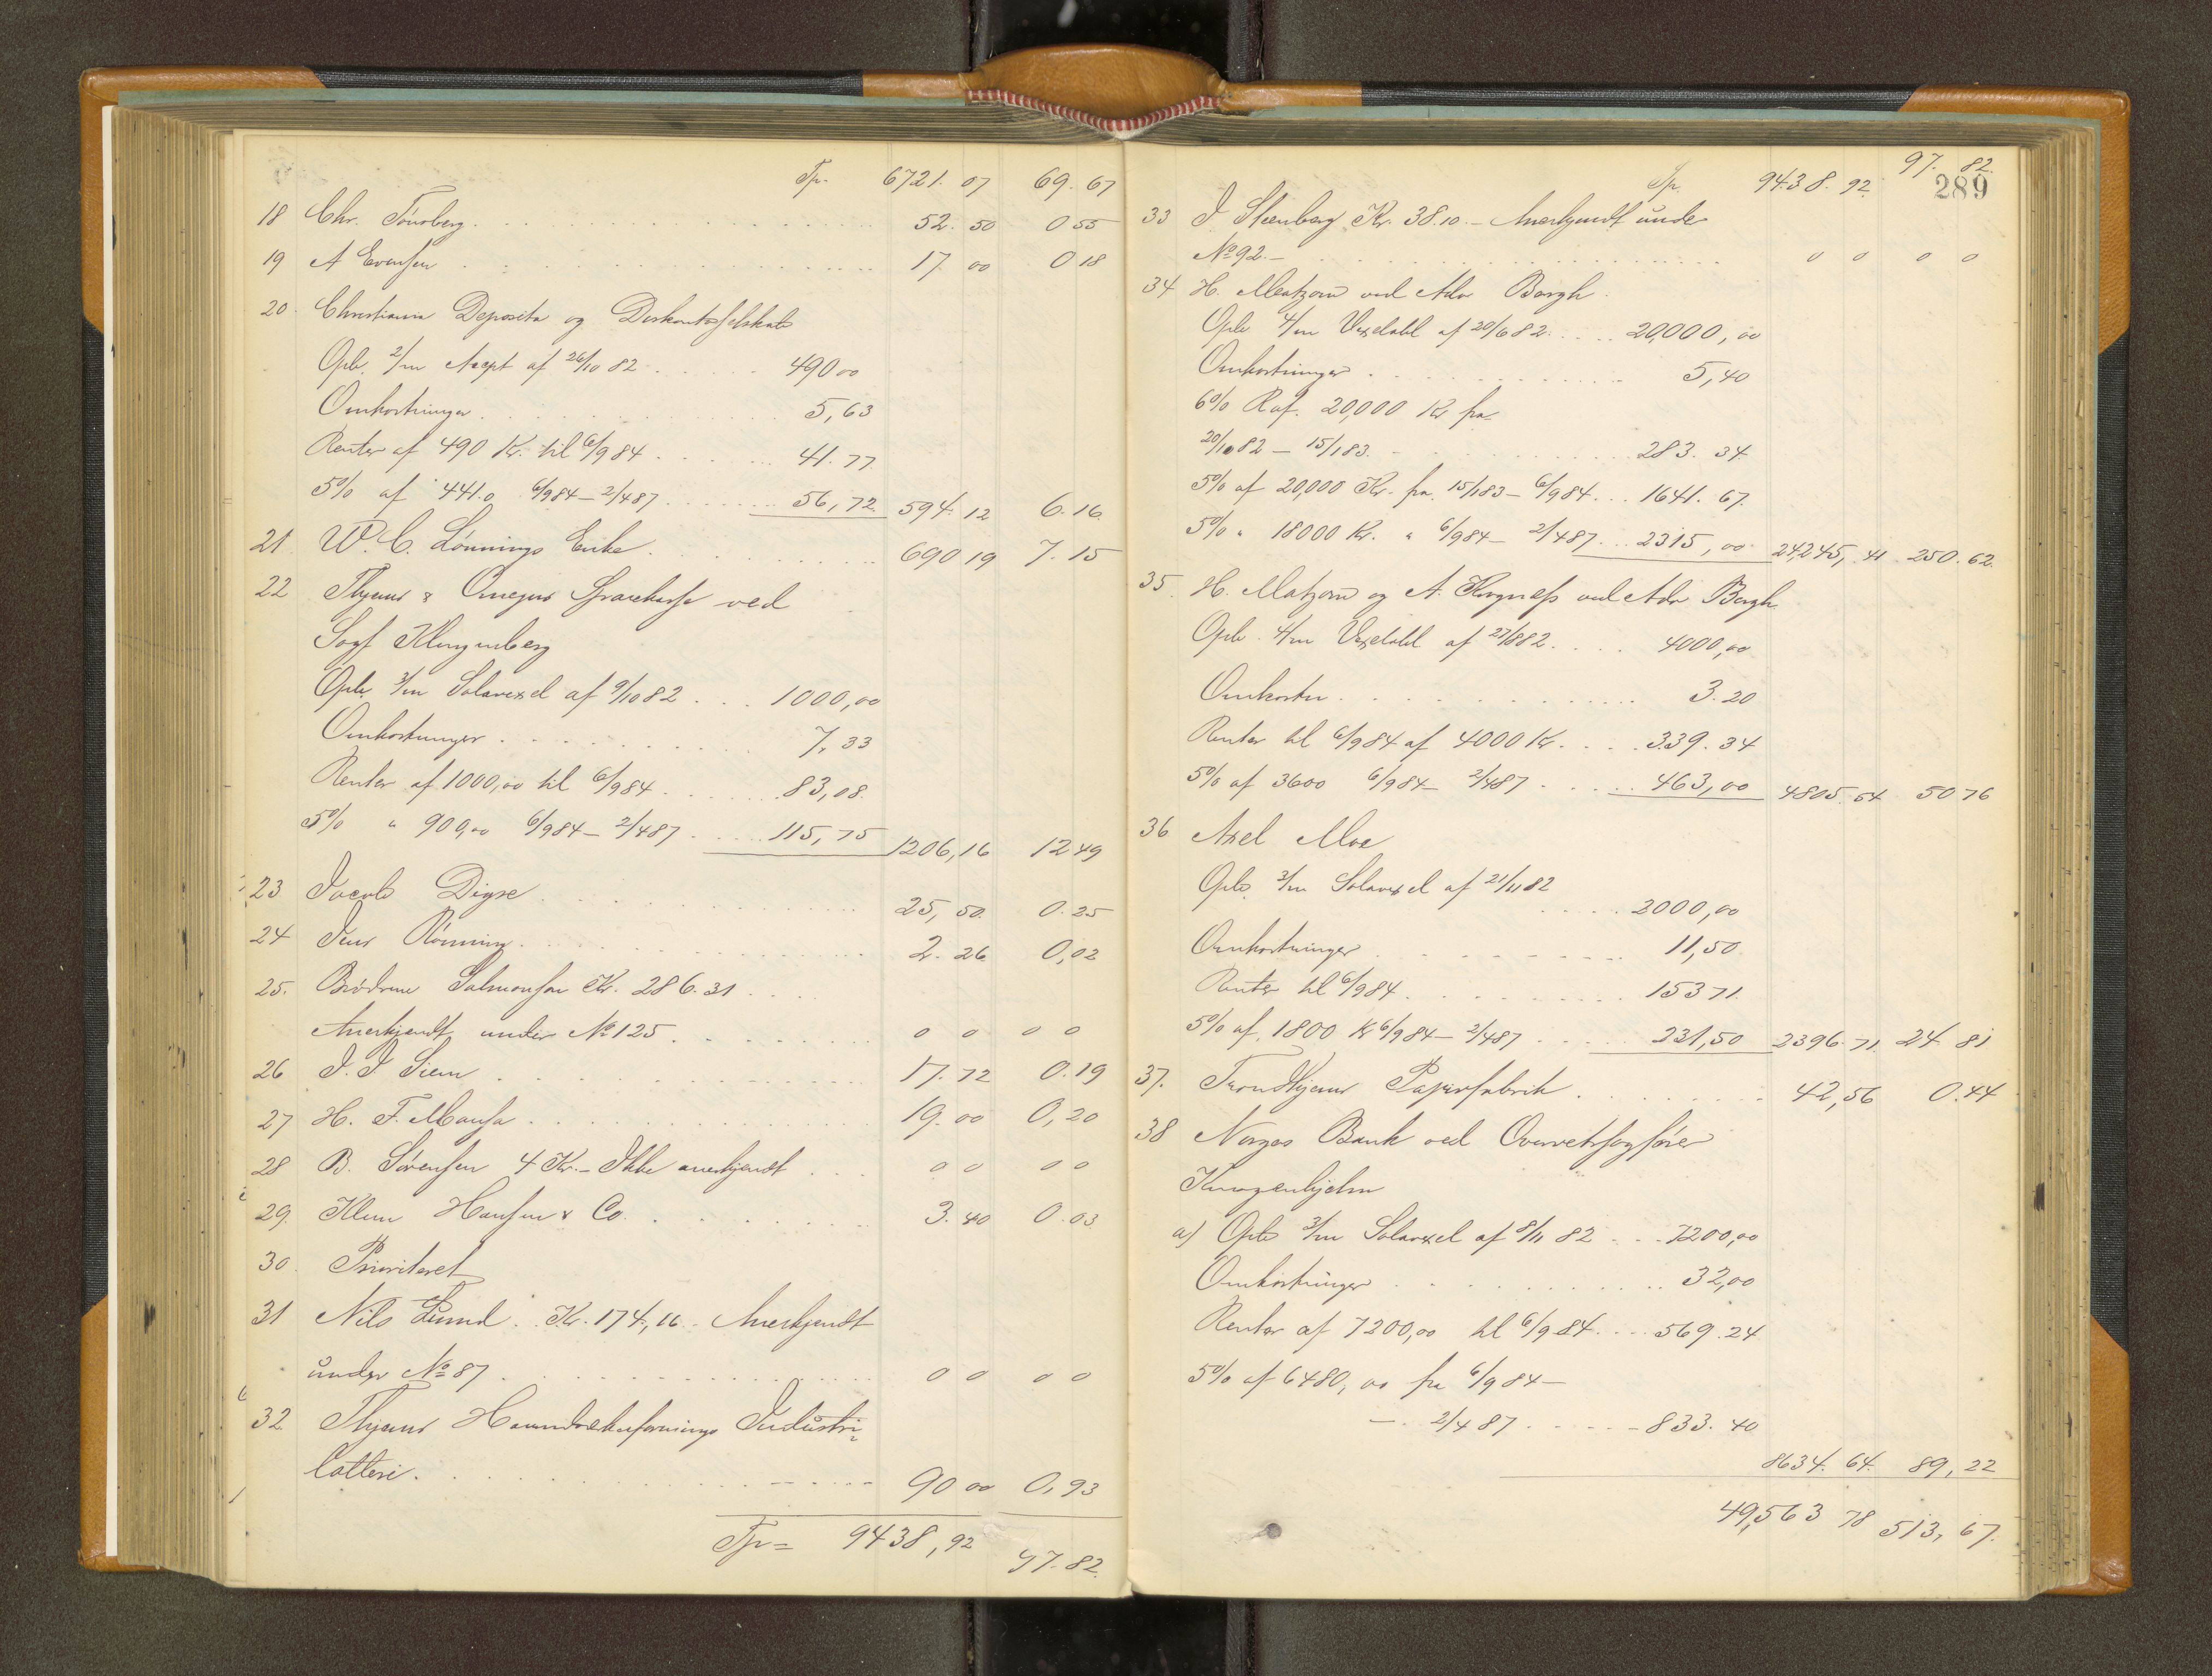 Tp. 6721. 07 69. 67
18 Chr. Tønsberg 52. 50 0 55
19 A Evensen 17 00 0 18
20. Christiania Deposito og Diskontoselskab
Opr. 2/m Accept af 26/10 82 490 00
Omkostninger 5,63
Renter af 490 Kr. til 6/9 84 41. 77
5% af 441.0 6/9 84 – 2/4 87 56,72 594. 12 6. 16.
21 W. C. Lønnings Enke 690 19 7. 15
22 Thjems & Omegns Sparekasse ved
Sagf Klingenberg
Opr. 3/m Solavexel af 9/10 82 1000,00
Omkostninger 7,33
Renter af 1000,00 til 6/9 84 83,08.
5% " 900,00 6/9 84 – 2/4 87 115,75 1206,16 12 49
23 Jacob Digre 25,50. 0. 25
24 Jens Rønning 2. 26. 0,02
25. Brødrene Salmonsen Kr. 286. 31
Anerkjendt under No 125 0 0 0 0
26 J. J. Siem 17. 72 0. 19
27 H. F. 19. 00 0, 20
28 B. Sørensen 4 Kr. – Ikke anerkjendt 0 0 0 0
29. Klem Hansen & Co. 3. 40 0. 03
30. Prioriteret
31 Nils Lund. Kr. 174,16. Anerkjendt
under No 87 0 0 0 0
32. Thjems Industri=
lotteri 90 00 0, 93
Tp= 9438,92 97. 82.
289
Tp. 9438. 92 97. 82.
33 J. Steenberg Kr. 38.10 – Anerkjendt under
No 92 – 0 0 0 0
34 H. Matzow ved Adv Bergh
Opr. 4/m Vexelobl af 20/6 82 20,000,00
Omkostninger 5,40
6% R af. 20,000 Kr fra
20/10 82 – 15/1 83. 283. 34.
5% af 20,000 Kr. fra 15/1 83 – 6/9 84 1641. 67.
5% " 18000 Kr. " 6/9 84 – 2/4 87 2315,00 24,245,41 250. 62.
35. H. Matzow og A. Hogness ved Adv Bergh
Opr. 4/m Vexelobl af 27/8 82 4000,00
Omkostn. 3. 20
Renter til 6/9 84 af 4000 Kr. 339. 34
5% af 3600 6/9 84 – 2/4 87 463,00 4805. 54 50 76
36 Axel Moe
Opr. 3/m Solavexel af 21/11 82
2000,00
Omkostninger 11,50.
Renter til 6/9 84 153 71.
5% af 1800 Kr 6/9 84 – 2/4 87 231,50 2396. 71. 24 81
37. Trondhjems Papirfabrik 42,56 0. 44
38 Norges Bank ved Overretssagfører
Knagenhjelm
a) Opr. 3/m Solavexel af 8/11 82 7200,00
Omkostninger 32,00
Renter af 7200,00 til 6/9 84 569. 24
5% af 6480,00 fra 6/9 84 –
– 2/4 87 833. 40
8634. 64. 89, 22
49,563 78 513, 67.